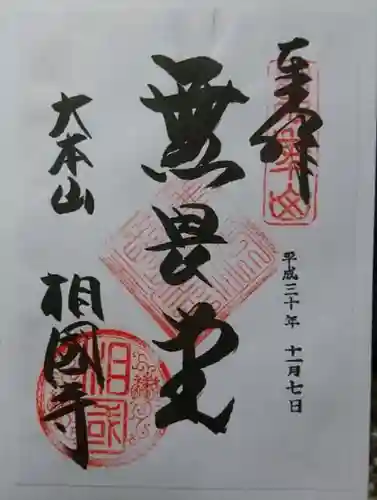 奉拝
平成三十年 十一月七日
無畏堂
大本山 相國寺